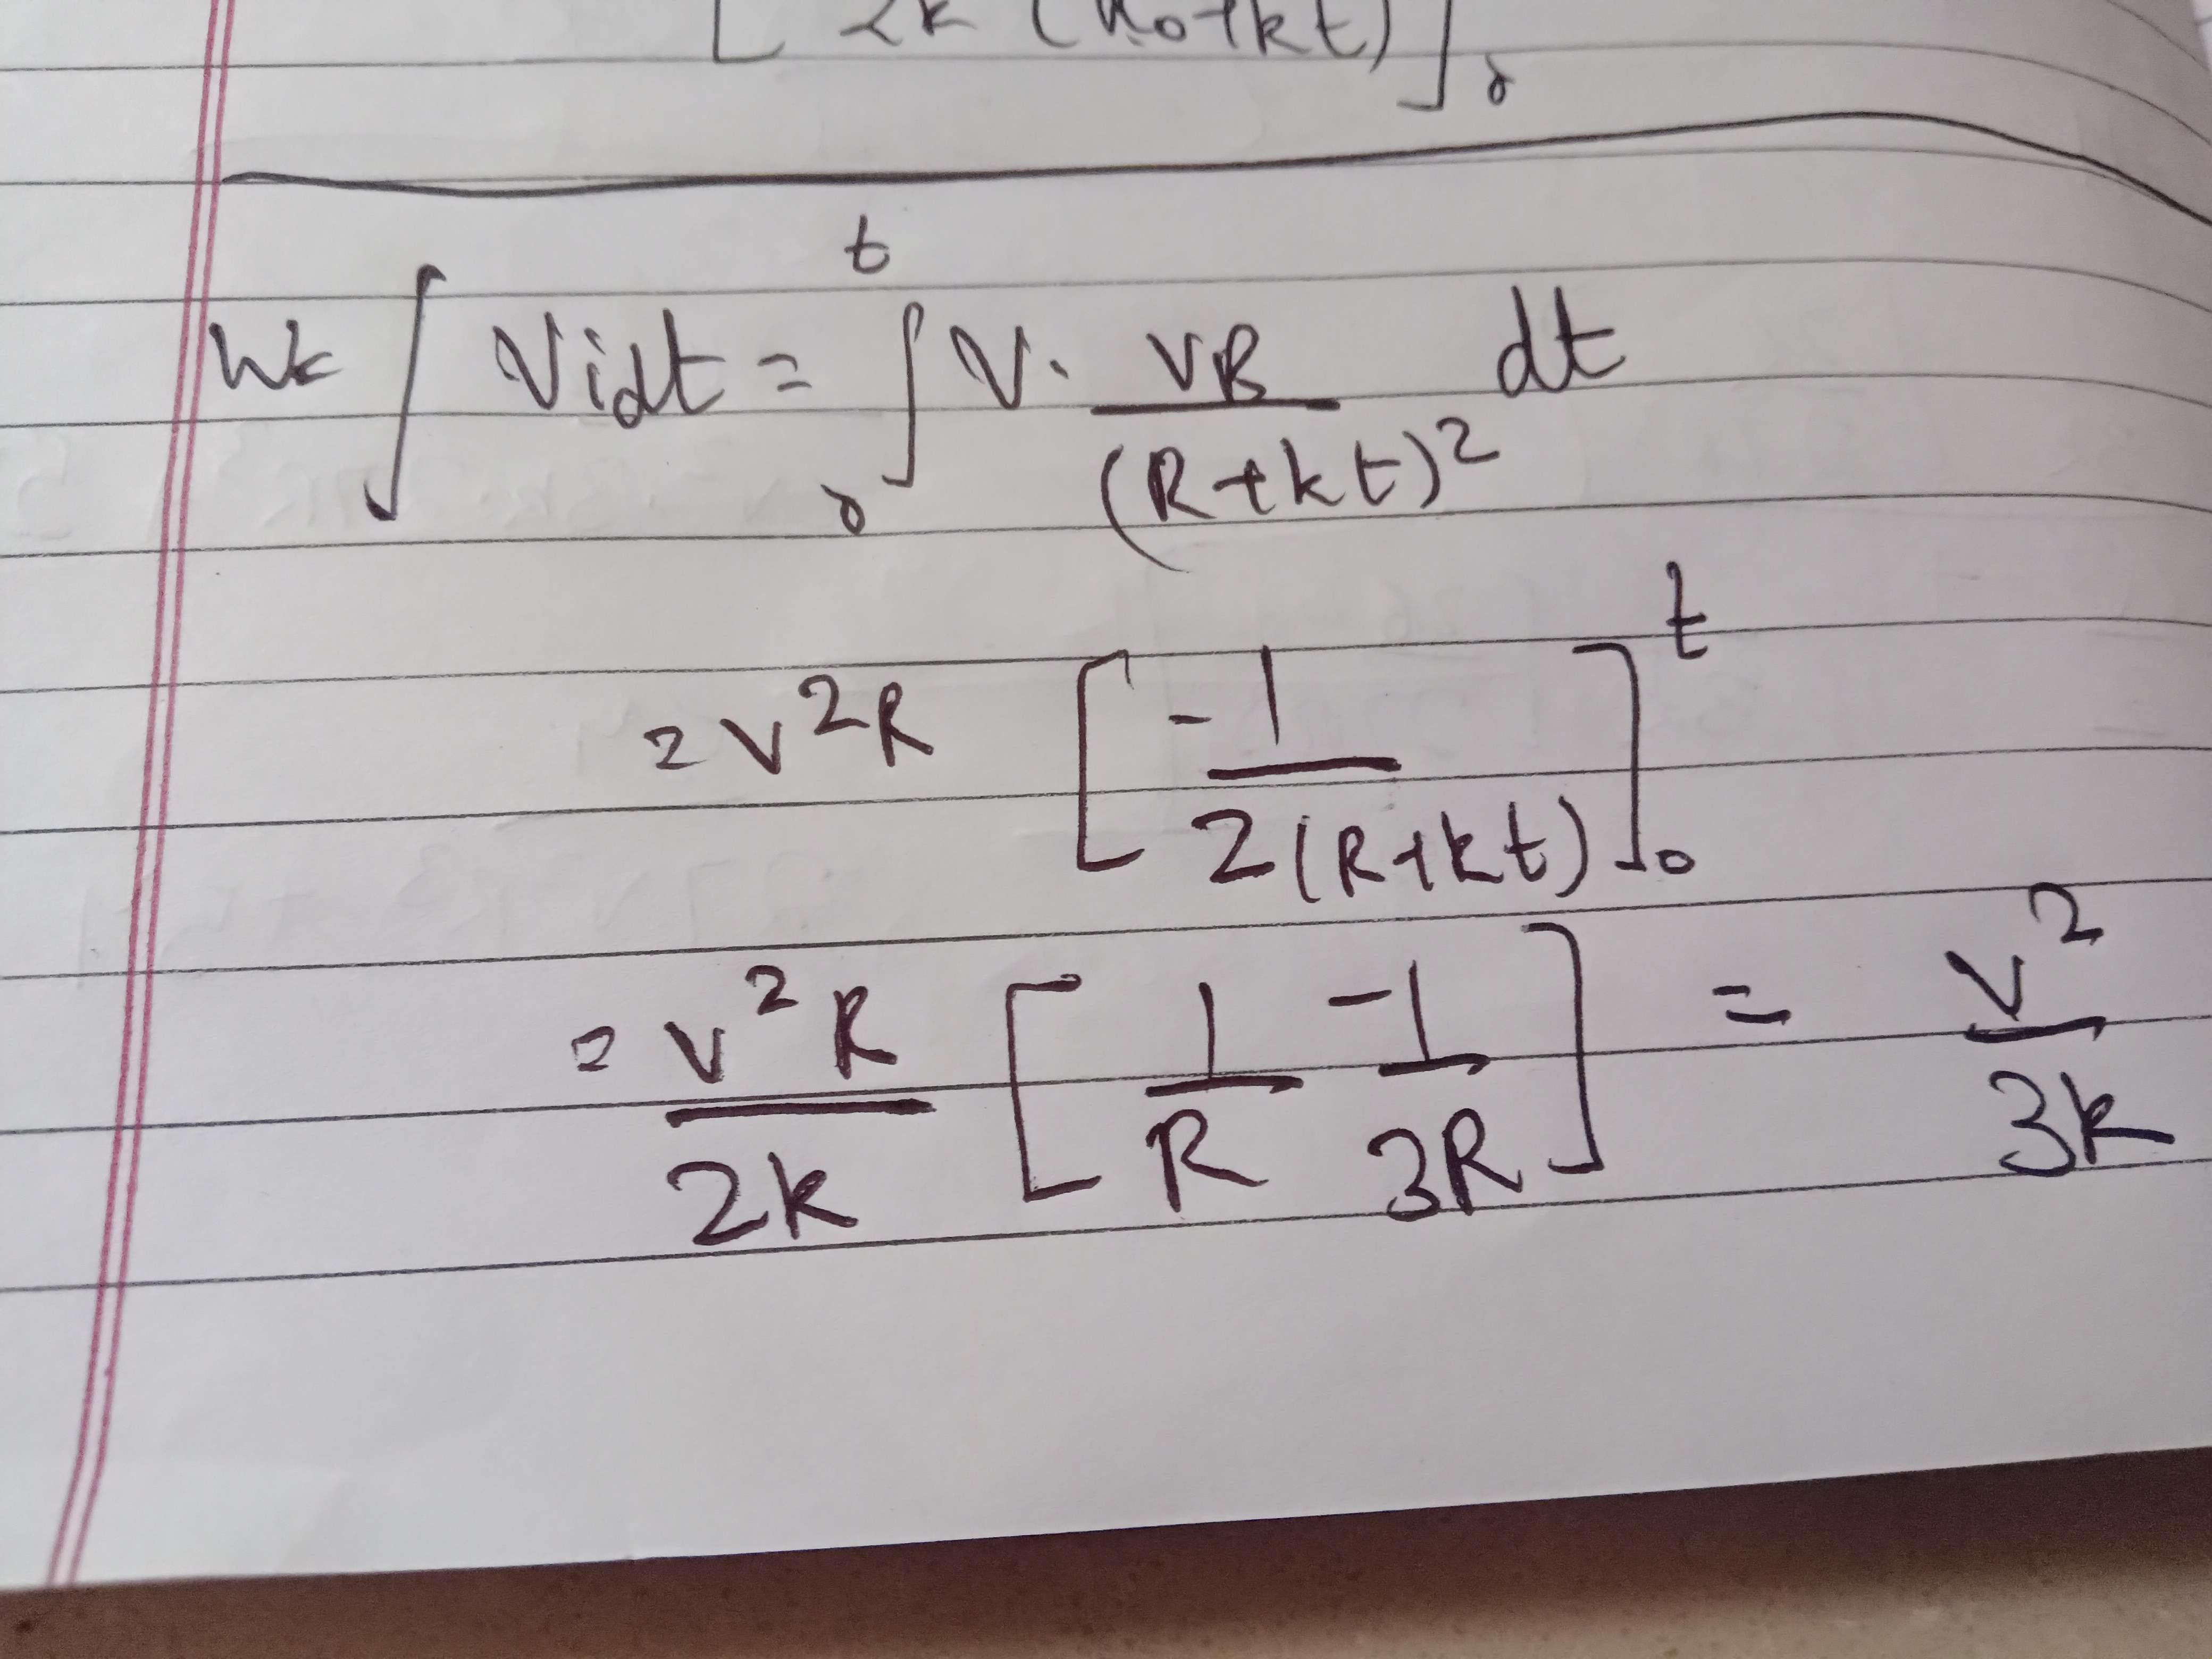 [ 2k (R0+kt) ]0
Wk ∫ Vidt = ∫₀ᵗ V. VR/(R+kt)² dt
= V²R [ -1/2(R+kt) ]₀ᵗ
= V²R/2k [ 1/R - 1/3R ] = V²/3k